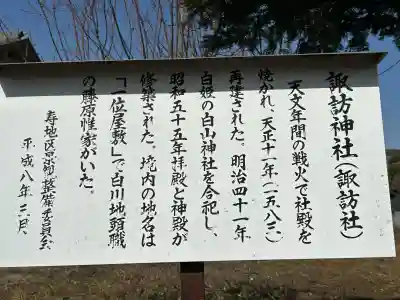 諏訪神社(諏訪社)
天文年間の戦火で社殿を
焼かれ、天正十一年(一五八三)
再建された。明治四十一年
白姫の白山神社を合祀し、
昭和五十五年拝殿と神殿が
修築された。境内の地名は
「一位屋敷」で白川地頭職
の藤原惟家がいた。
寿地区景物整備委員会
平成八年三月